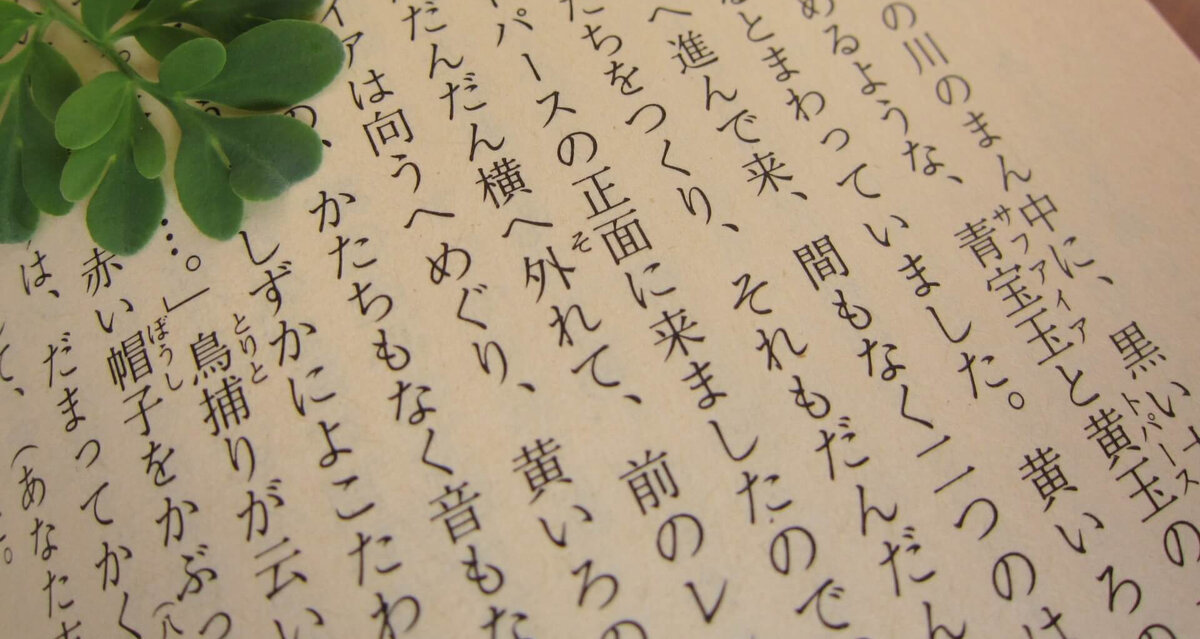 の川のまん中に、黒い
めるような、青宝玉と黄玉の
サファイア
トパース
るとまわっていました。黄いろの
へ進んで来、間もなく二つのは
たちをつくり、それもだんだん
パースの正面に来ましたので
だんだん横へ外れて、前のレ
そ
ィアは向うへめぐり、黄いろの
の、かたちもなく音もた
しずかによこたわ
…。」鳥捕りが云い
とりと
赤い帽子をかぶっ
ぼうし
は、だまってかく
て、（あなた